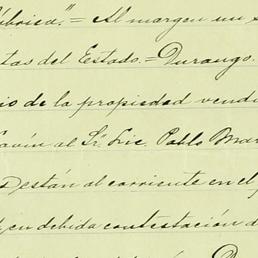 Rúbrica."= Al margen un s
tas del Estado.= Durango.
io de la propiedad vend
avín al Sr. Lic. Pablo Mar
están al corriente en el p
en debida contestación d